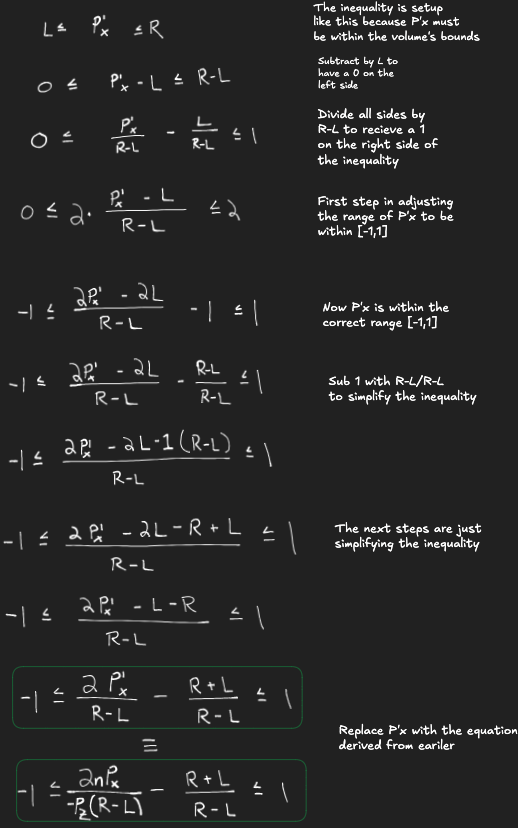 L ≤ P'x ≤ R
The inequality is setup
like this because P'x must
be within the volume's bounds
0 ≤ P'x - L ≤ R-L
Subtract by L to
have a 0 on the
left side
0 ≤ P'x/(R-L) - L/(R-L) ≤ 1
Divide all sides by
R-L to recieve a 1
on the right side of
the inequality
0 ≤ 2 · (P'x - L)/(R-L) ≤ 2
First step in adjusting
the range of P'x to be
within [-1,1]
-1 ≤ (2P'x - 2L)/(R-L) - 1 ≤ 1
Now P'x is within the
correct range [-1,1]
-1 ≤ (2P'x - 2L)/(R-L) - (R-L)/(R-L) ≤ 1
Sub 1 with R-L/R-L
to simplify the inequality
-1 ≤ (2P'x - 2L-1(R-L))/(R-L) ≤ 1
-1 ≤ (2P'x - 2L - R + L)/(R-L) ≤ 1
The next steps are just
simplifying the inequality
-1 ≤ (2P'x - L - R)/(R-L) ≤ 1
-1 ≤ 2P'x/(R-L) - (R+L)/(R-L) ≤ 1
≡
Replace P'x with the equation
derived from eariler
-1 ≤ 2nPx/(-Pz(R-L)) - (R+L)/(R-L) ≤ 1